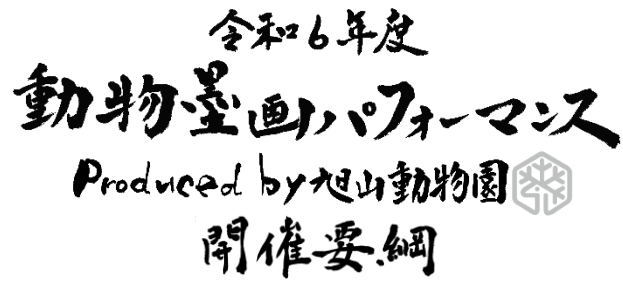 令和6年度
動物墨画パフォーマンス
Produced by 旭山動物園
開催要綱